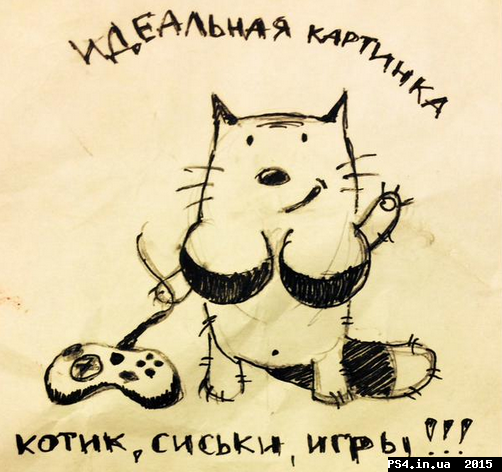 ИДЕАЛЬНАЯ КАРТИНКА
КОТИК, СИСЬКИ, ИГРЫ!!!
PS4.in.ua 2015